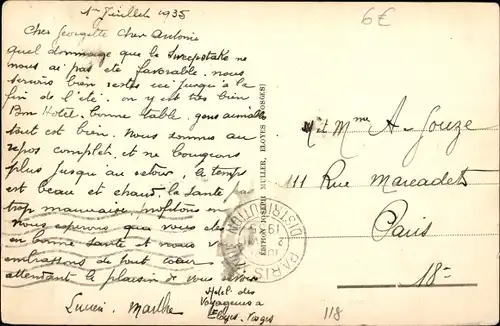 1er Juillet 1935
6€
Cher Georgette Cher Antonin
quel dommage que le Sweepstake ne
nous ai pas été favorable. nous
serions bien restés ici jusqu'à la
fin de l'été. on y est très bien
Bon Hotel. bonne table, gens aimables
tout est bien. nous donnons au
repos complet, et ne bougeons
plus jusqu'au retour, le temps
est beau et chaud, la santé pas
trop mauvaise, profitons en
nous espérons que vous êtes
en bonne santé et nous vous
embrassons de tout coeur
attendant le plaisir de vous
Lucien. Marthe
Hotel des
Voyageurs à
Eloyes. Vosges
ÉDITION JOSEPH MULLER, ELOYES (VOSGES)
PARIS
DISTRIBUTION
M et Mme A. Gouze
111 Rue Marcadet
Paris
18e
118